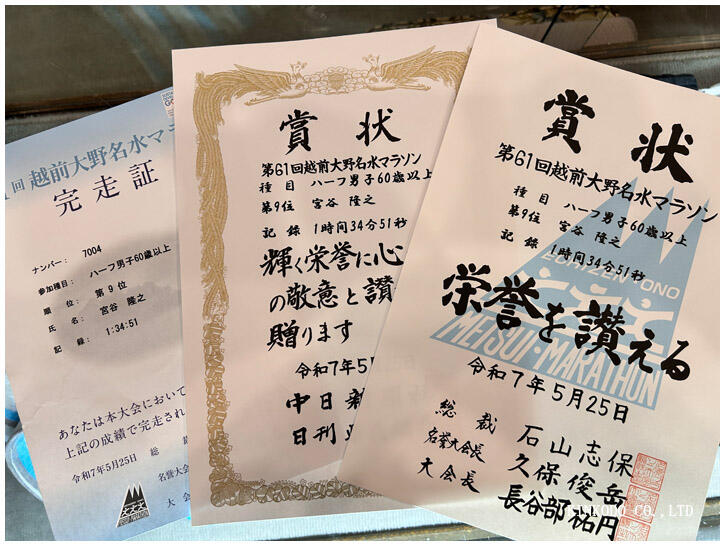 回 越前大野名水マラ
完走証
ナンバー： 7004
参加種目： ハーフ男子60歳以上
順 位： 第 9 位
氏 名： 宮谷 隆之
記 録： 1:34:51
あなたは本大会において
上記の成績で完走され
令和7年5月25日 総 裁
名誉大会
大 会
賞 状
第61回越前大野名水マラソン
種 目 ハーフ男子60歳以上
第9位 宮谷 隆之
記 録 1時間34分51秒
輝く栄誉に心
の敬意と讃
贈ります
令和7年5
中日新
日刊
賞 状
第61回越前大野名水マラソン
種 目 ハーフ男子60歳以上
第9位 宮谷 隆之
記 録 1時間34分51秒
ECHIZEN-ONO
栄誉を讃える
MEISUI・MARATHON
令和7年5月25日
総 裁 石山志保
名誉大会長 久保俊岳
大会長 長谷部祐円
CO.,LTD